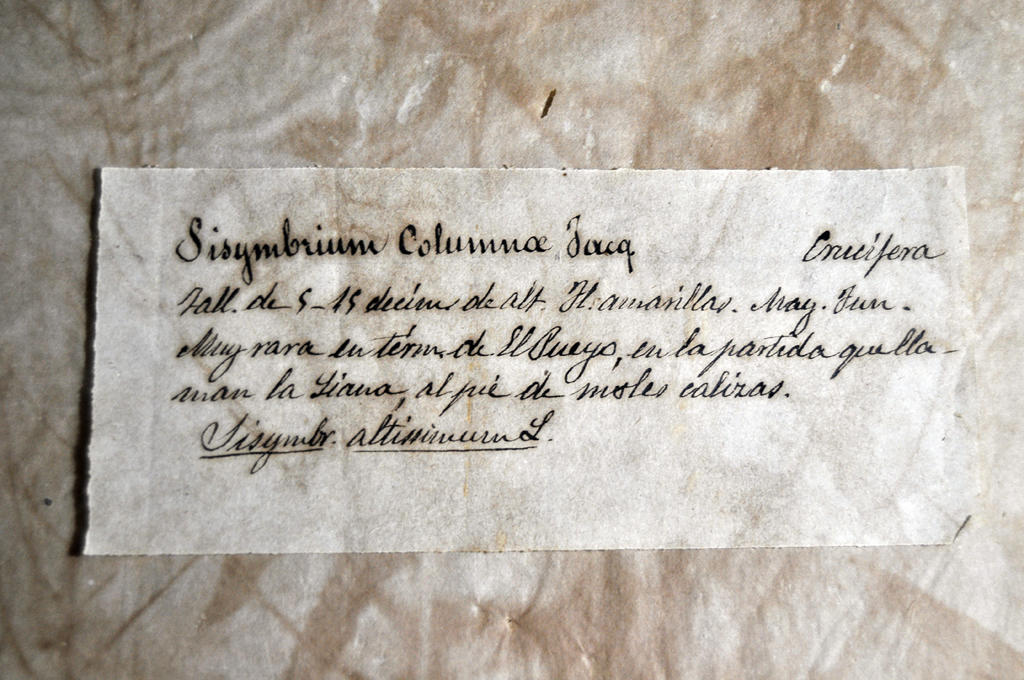 Sisymbrium Columnæ Jacq Crucífera
Tall. de 5-15 decím. de alt. Fl. amarillas. May. Jun.
Muy rara en térm. de El Pueyo, en la partida que lla-
man la Siana, al pié de moles calizas.
Sisymbr. altissimum L.